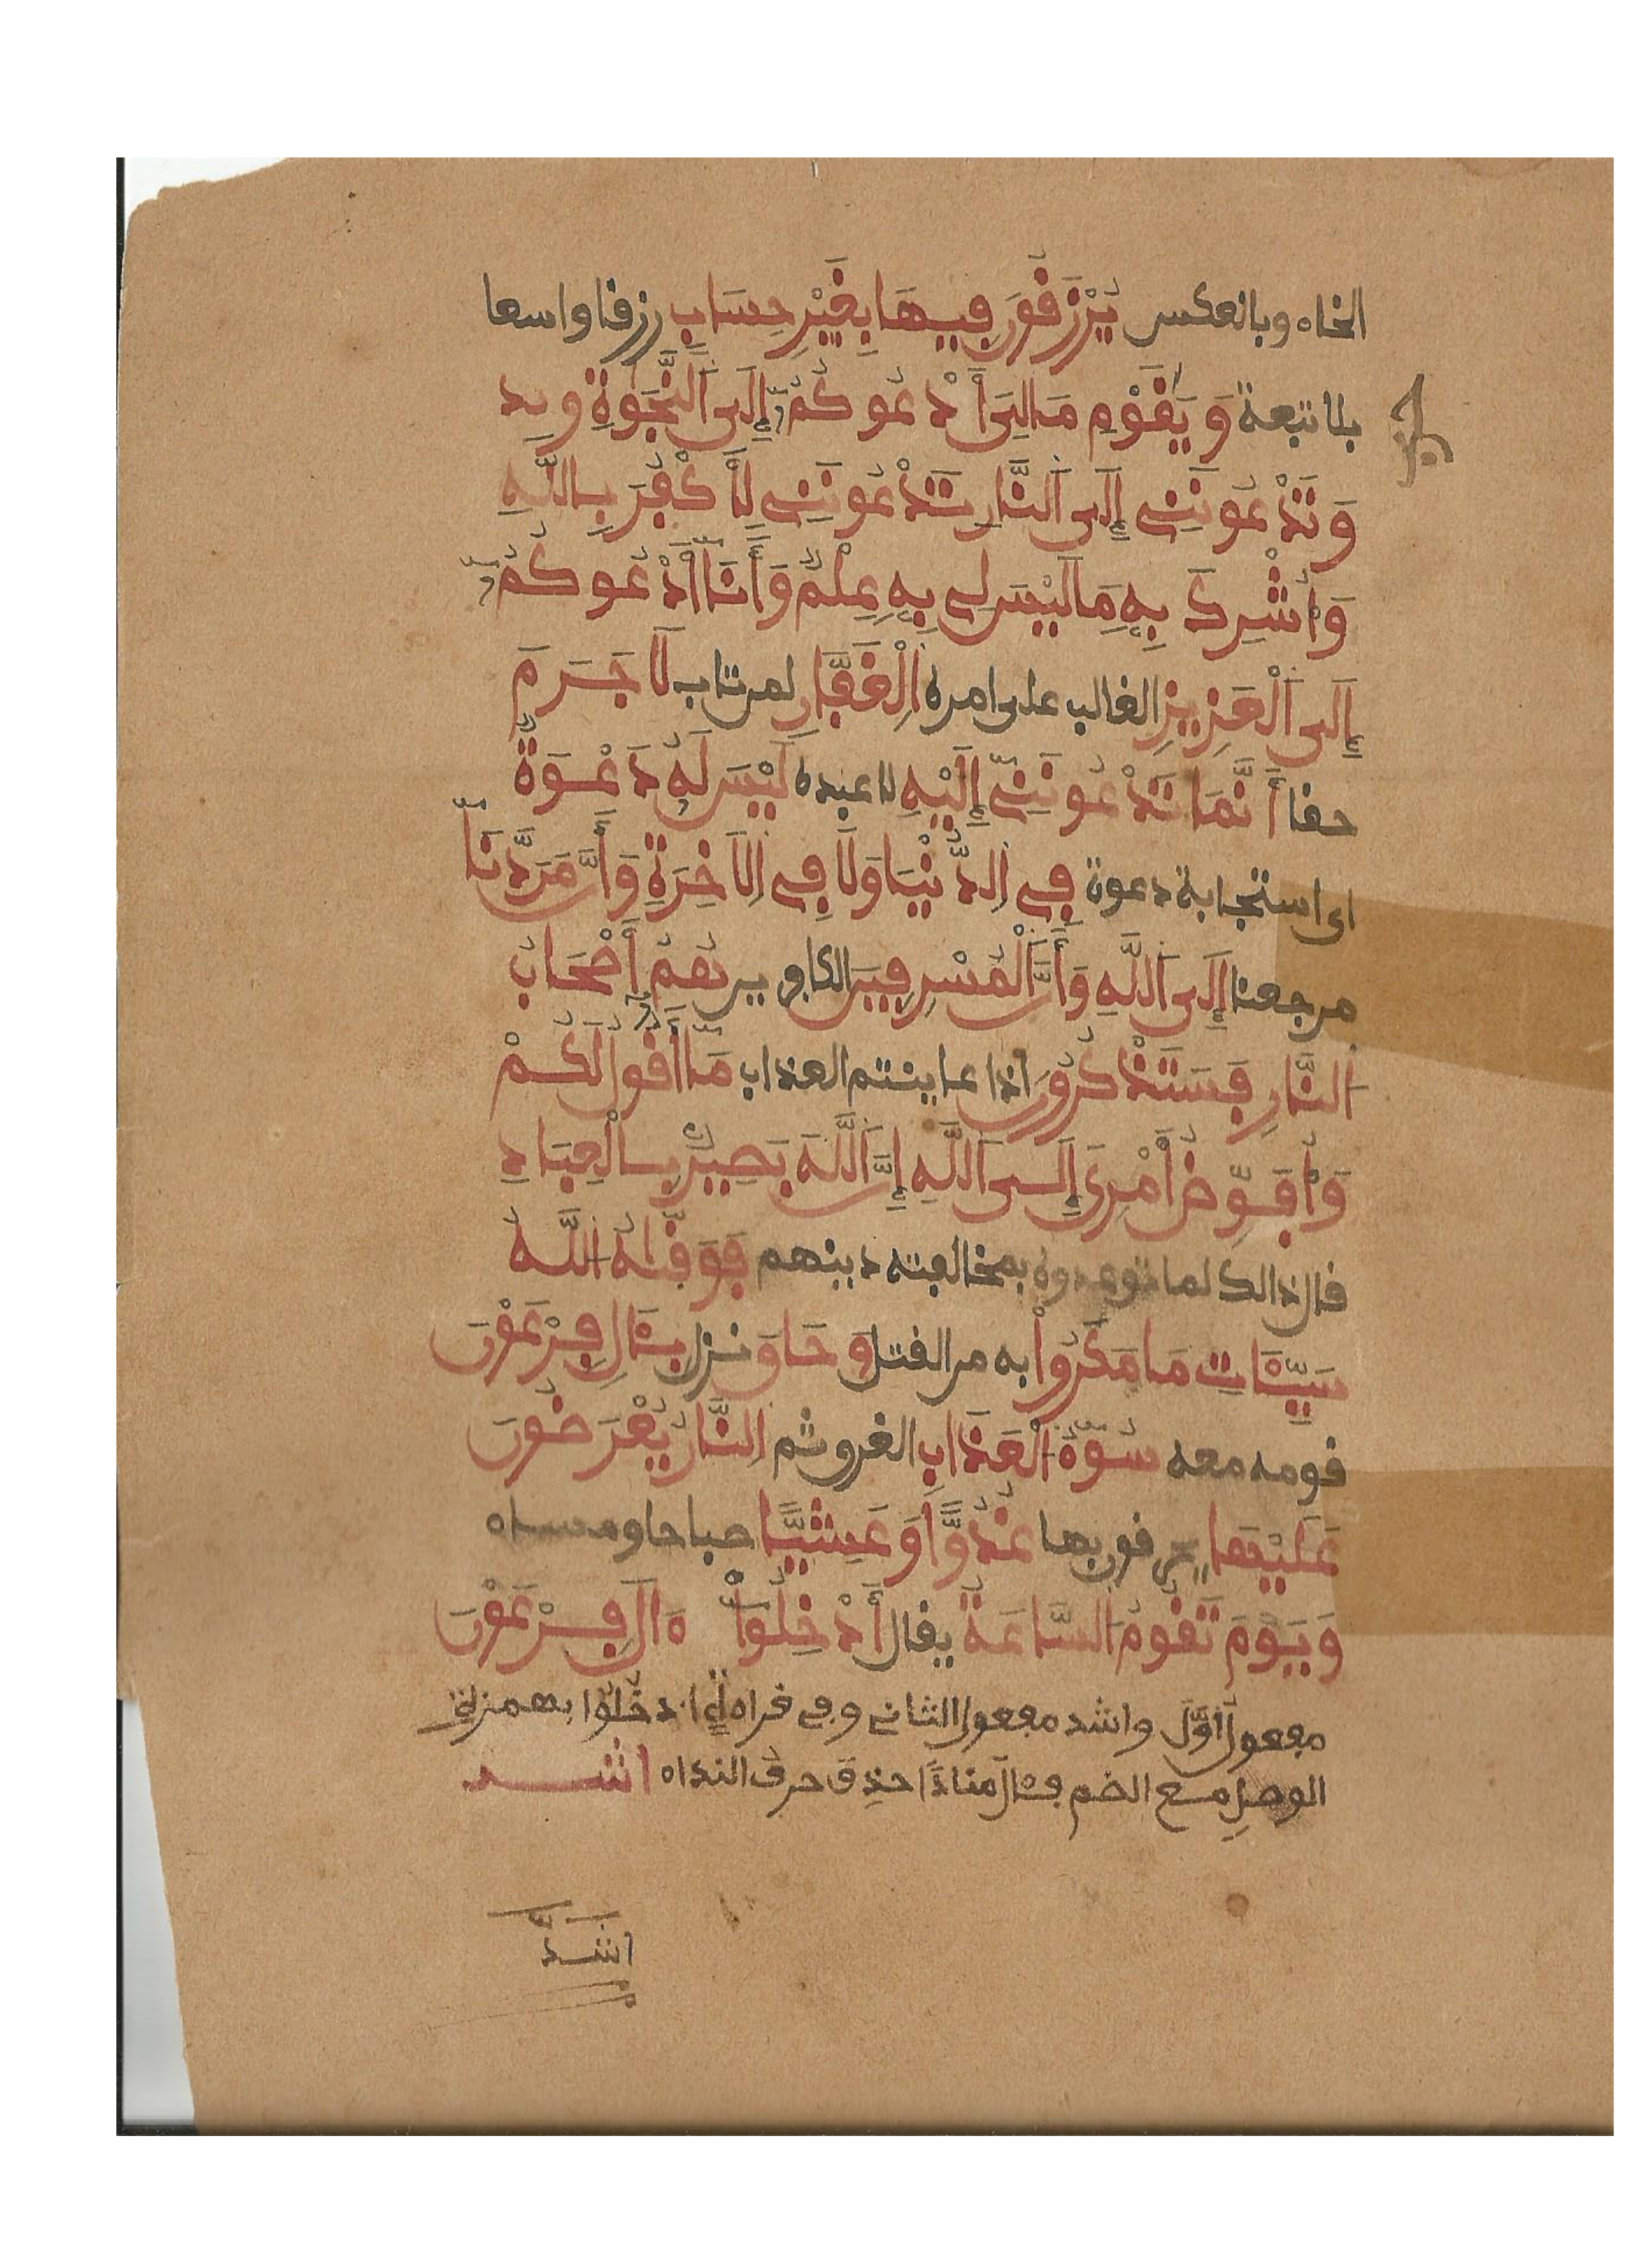 الخاء وبالعكس يُرْزَقُونَ فِيهَا بِغَيْرِ حِسَابٍ رزقا واسعا
بلا تبعة وَيَٰقَوْمِ مَالِيَ أَدْعُوكُمُ إِلَى اَلنَّجَوٰةِ
وَتَدْعُونَنِي إِلَى اَلنَّارِ تَدْعُونَنِي لِأَكْفُرَ بِاللَّهِ
وَأُشْرِكَ بِهِ مَا لَيْسَ لِي بِهِ عِلْمٌ وَأَنَا أَدْعُوكُمُ
إِلَى اَلْعَزِيزِ الغالب على امره اِلْغَفَّارِ لمن تاب لَا جَرَمَ
حقا أَنَّمَا تَدْعُونَنِي إِلَيْهِ لاعبده لَيْسَ لَهُ دَعْوَةٌ
اى استجابة دعوة فِي اِلدُّنْيَا وَلَا فِي اِلَاخِرَةِ وَأَنَّ مَرَدَّنَا
مرجعنا إِلَى اَللَّهِ وَأَنَّ اَلْمُسْرِفِينَ الكافرين هُمُ أَصْحَابُ
اَلنَّارِ فَسَتَذْكُرُونَ اذا عاينتم العذاب مَا أَقُولُ لَكُمْ
وَأُفَوِّضُ أَمْرِيَ إِلَى اَللَّهِ إِنَّ اَللَّهَ بَصِيرٌ بِالْعِبَادِ
قال ذالك لما توعدوه بمخالفته دينهم فَوَقَٰهُ اُللَّهُ
سَيِّئَاتِ مَا مَكَرُواْ به من القتل وَحَاقَ نزل بِـَٔالِ فِرْعَوْنَ
قومه معه سُوٓءُ اُلْعَذَابِ الغرق ثم اِلنَّارُ يُعْرَضُونَ
عَلَيْهَا يحرقون بها غُدُوًّا وَعَشِيًّا صباحا ومساء
وَيَوْمَ تَقُومُ اُلسَّاعَةُ يقال أَدْخِلُواْ ءَالَ فِرْعَوْنَ
مفعول أوّل واشد مفعول الثاني وفي قراءة ادخُلُوا بهمزة
الوصلِ مع الضم فـَٔال منادًا حذِف حرف النداء اشد
اشدّ